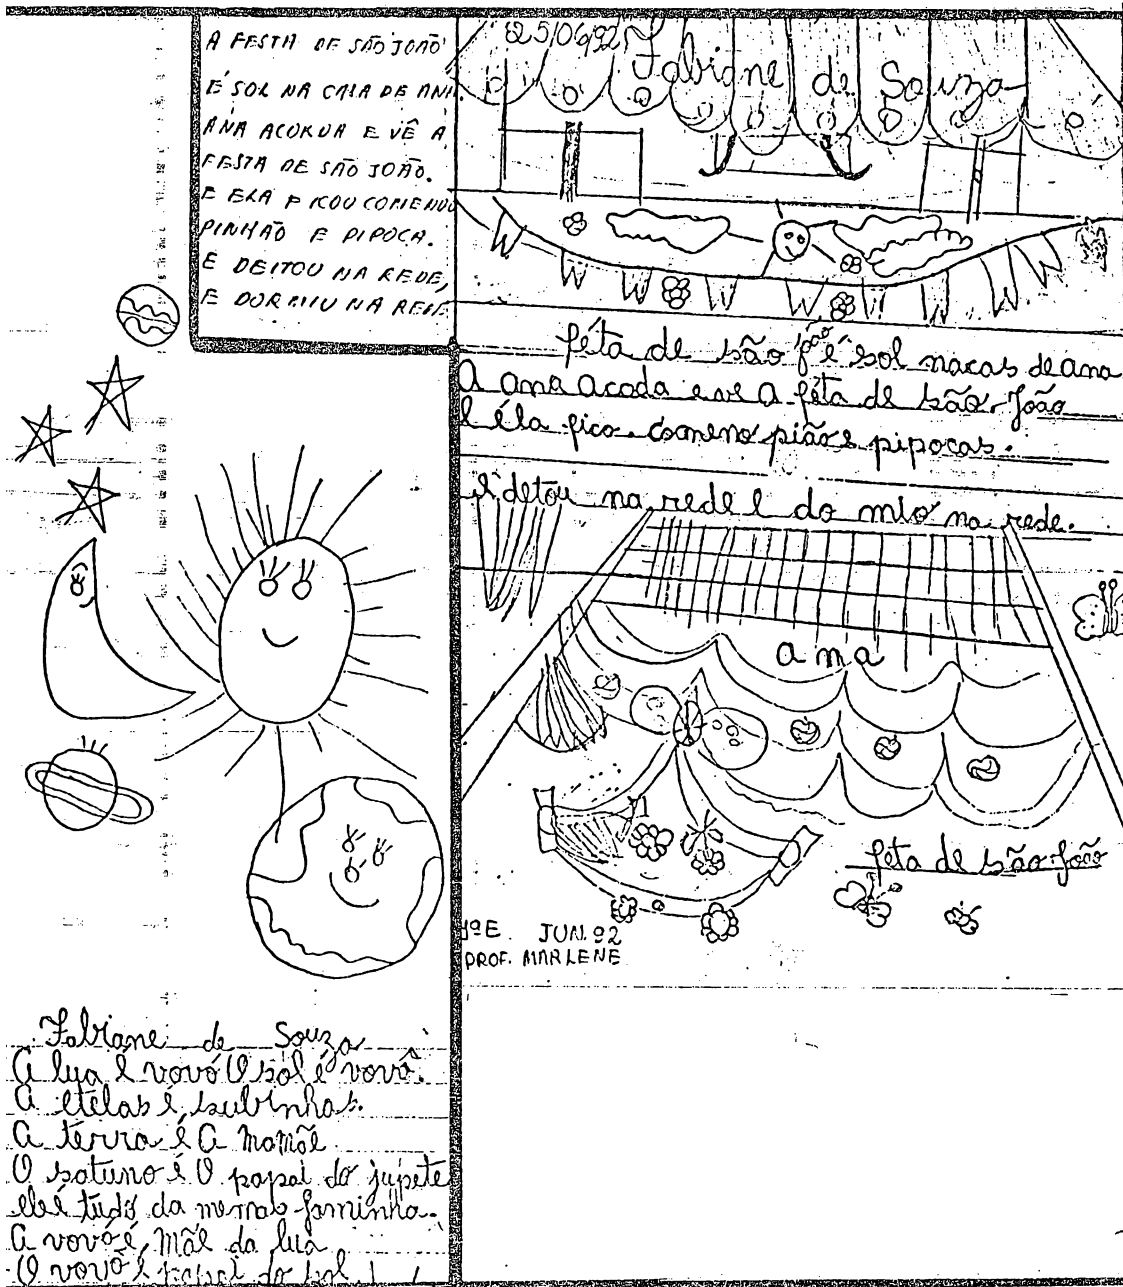 A FESTA DE SÃO JOÃO
É SOL NA CASA DE ANA.
ANA ACORDA E VÊ A
FESTA DE SÃO JOÃO.
E ELA FICOU COMENDO
PINHÃO E PIPOCA.
E DEITOU NA REDE,
E DORMIU NA REDE.
25/06/92
Fabiane de Souza
féta de são joão é sol nacas de ana
A ana acoda e ve A féta de são João
e éla fico comeno pião e pipocas.
e detou na rede e do mio na rede.
ama
feta de são joão
1ºE JUN. 92
PROF. MARLENE
Fabiane de Souza
A lua é vovó O sol é vovô.
A etelas é subinhas.
A terra é A mamãe
O satuno é O papai do jupete
ele é tudo da mema faminha.
A vovó é, mãe da lua
O vovô é papai do sol